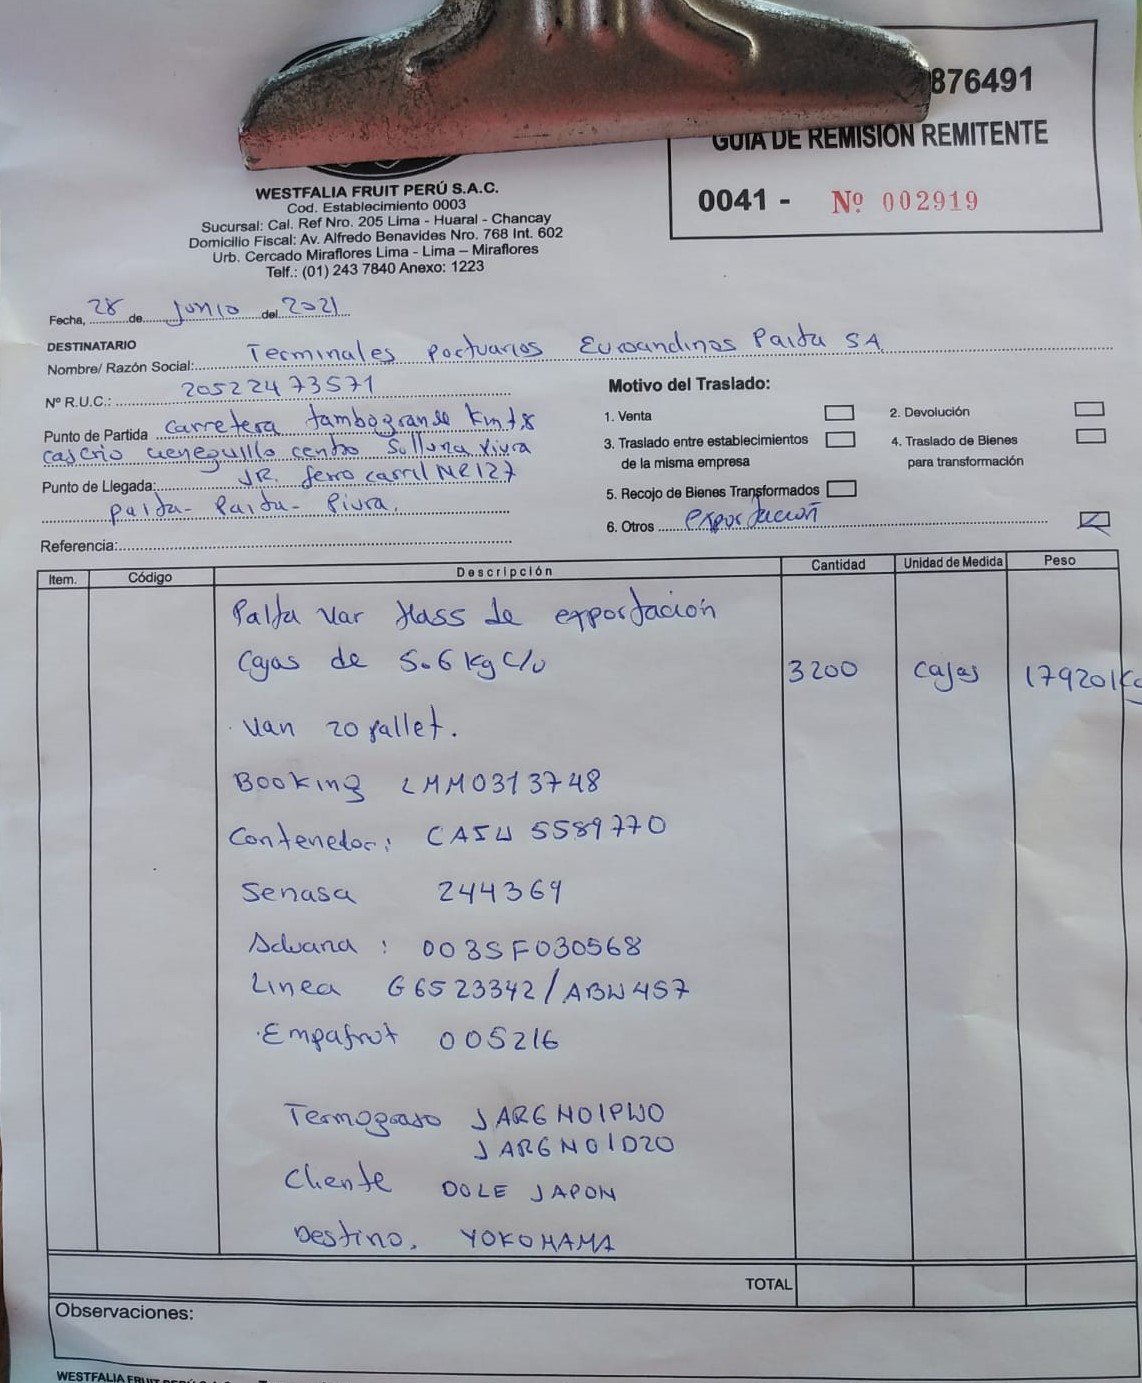 876491
GUIA DE REMISIÓN REMITENTE
0041 - Nº 002919
WESTFALIA FRUIT PERÚ S.A.C.
Cod. Establecimiento 0003
Sucursal: Cal. Ref Nro. 205 Lima - Huaral - Chancay
Domicilio Fiscal: Av. Alfredo Benavides Nro. 768 Int. 602
Urb. Cercado Miraflores Lima - Lima – Miraflores
Telf.: (01) 243 7840 Anexo: 1223
Fecha, 28 de Junio del 2021
DESTINATARIO
Nombre/ Razón Social: Terminales Portuarios Euroandinos Paita SA
Nº R.U.C.: 20522473571
Punto de Partida carretera tambogrande
caserio cieneguillo centro Sullana Piura
Punto de Llegada: JR. ferro carril NR127
paita - Paita - Piura.
Referencia:
Motivo del Traslado:
1. Venta
2. Devolución
3. Traslado entre establecimientos
de la misma empresa
4. Traslado de Bienes
para transformación
5. Recojo de Bienes Transformados
6. Otros exportación
Item. Código Descripción Cantidad Unidad de Medida Peso
Palta var Hass de exportación
Cajas de 5.6 kg c/u 3200 cajas 17920 Kg
Van 20 pallet.
Booking LMM0313748
Contenedor: CAIU 5589770
Senasa 244369
Aduana : 003SF030568
Linea G6523342/ABW457
Empafrut 005216
Termograso JARGN01PW0
JARGN01D20
Cliente DOLE JAPON
Destino. YOKOHAMA
TOTAL
Observaciones:
WESTFALIA FRUIT